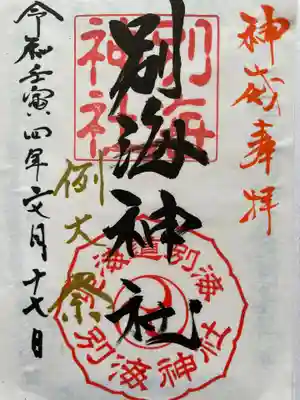 神 奉拝
別海神社
別海
神社
例大祭
海道別海
別海神社
令和壬寅四年文月十七日